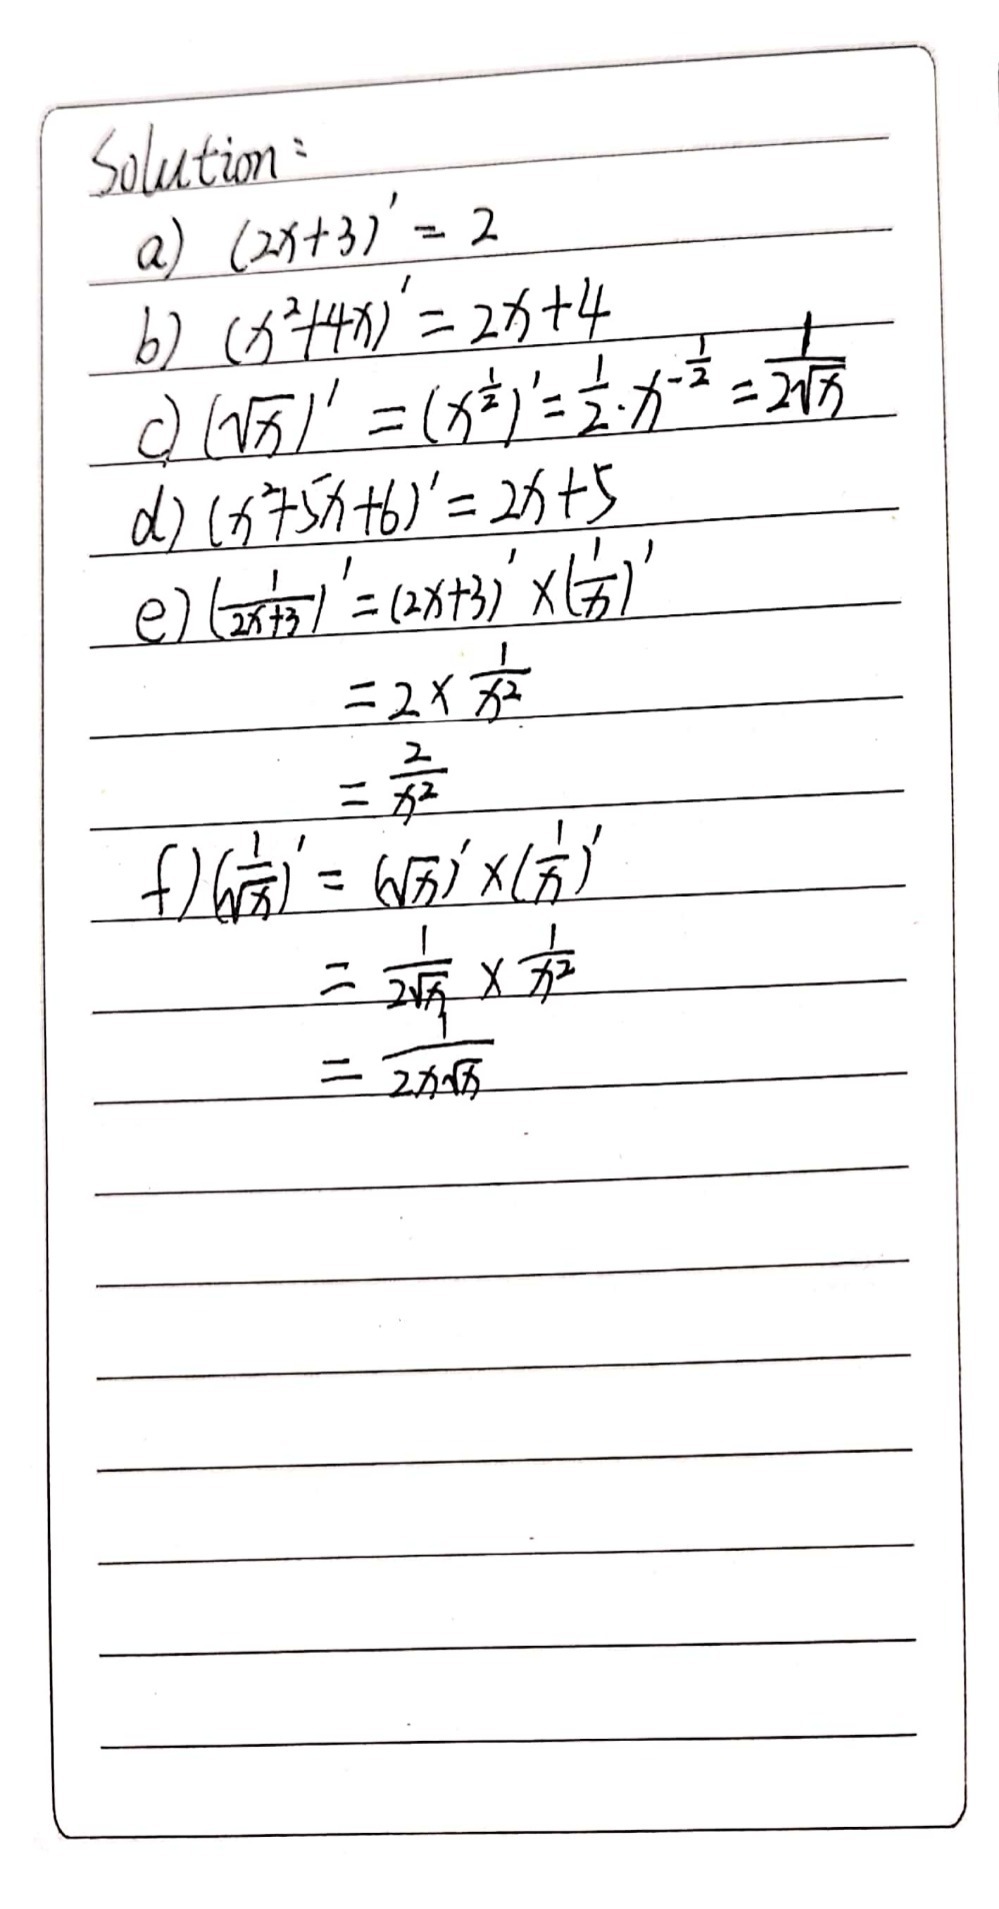 Solution:
a) (2x+3)' = 2
b) (x²+4x)' = 2x+4
c) (√x)' = (x^{1/2})' = 1/2 · x^{-1/2} = 1/(2√x)
d) (x²+5x+6)' = 2x+5
e) (1/(2x+3))' = (2x+3)' × (1/x)'
= 2 × 1/x²
= 2/x²
f) (1/√x)' = (√x)' × (1/x)'
= 1/(2√x) × 1/x²
= 1/(2x√x)